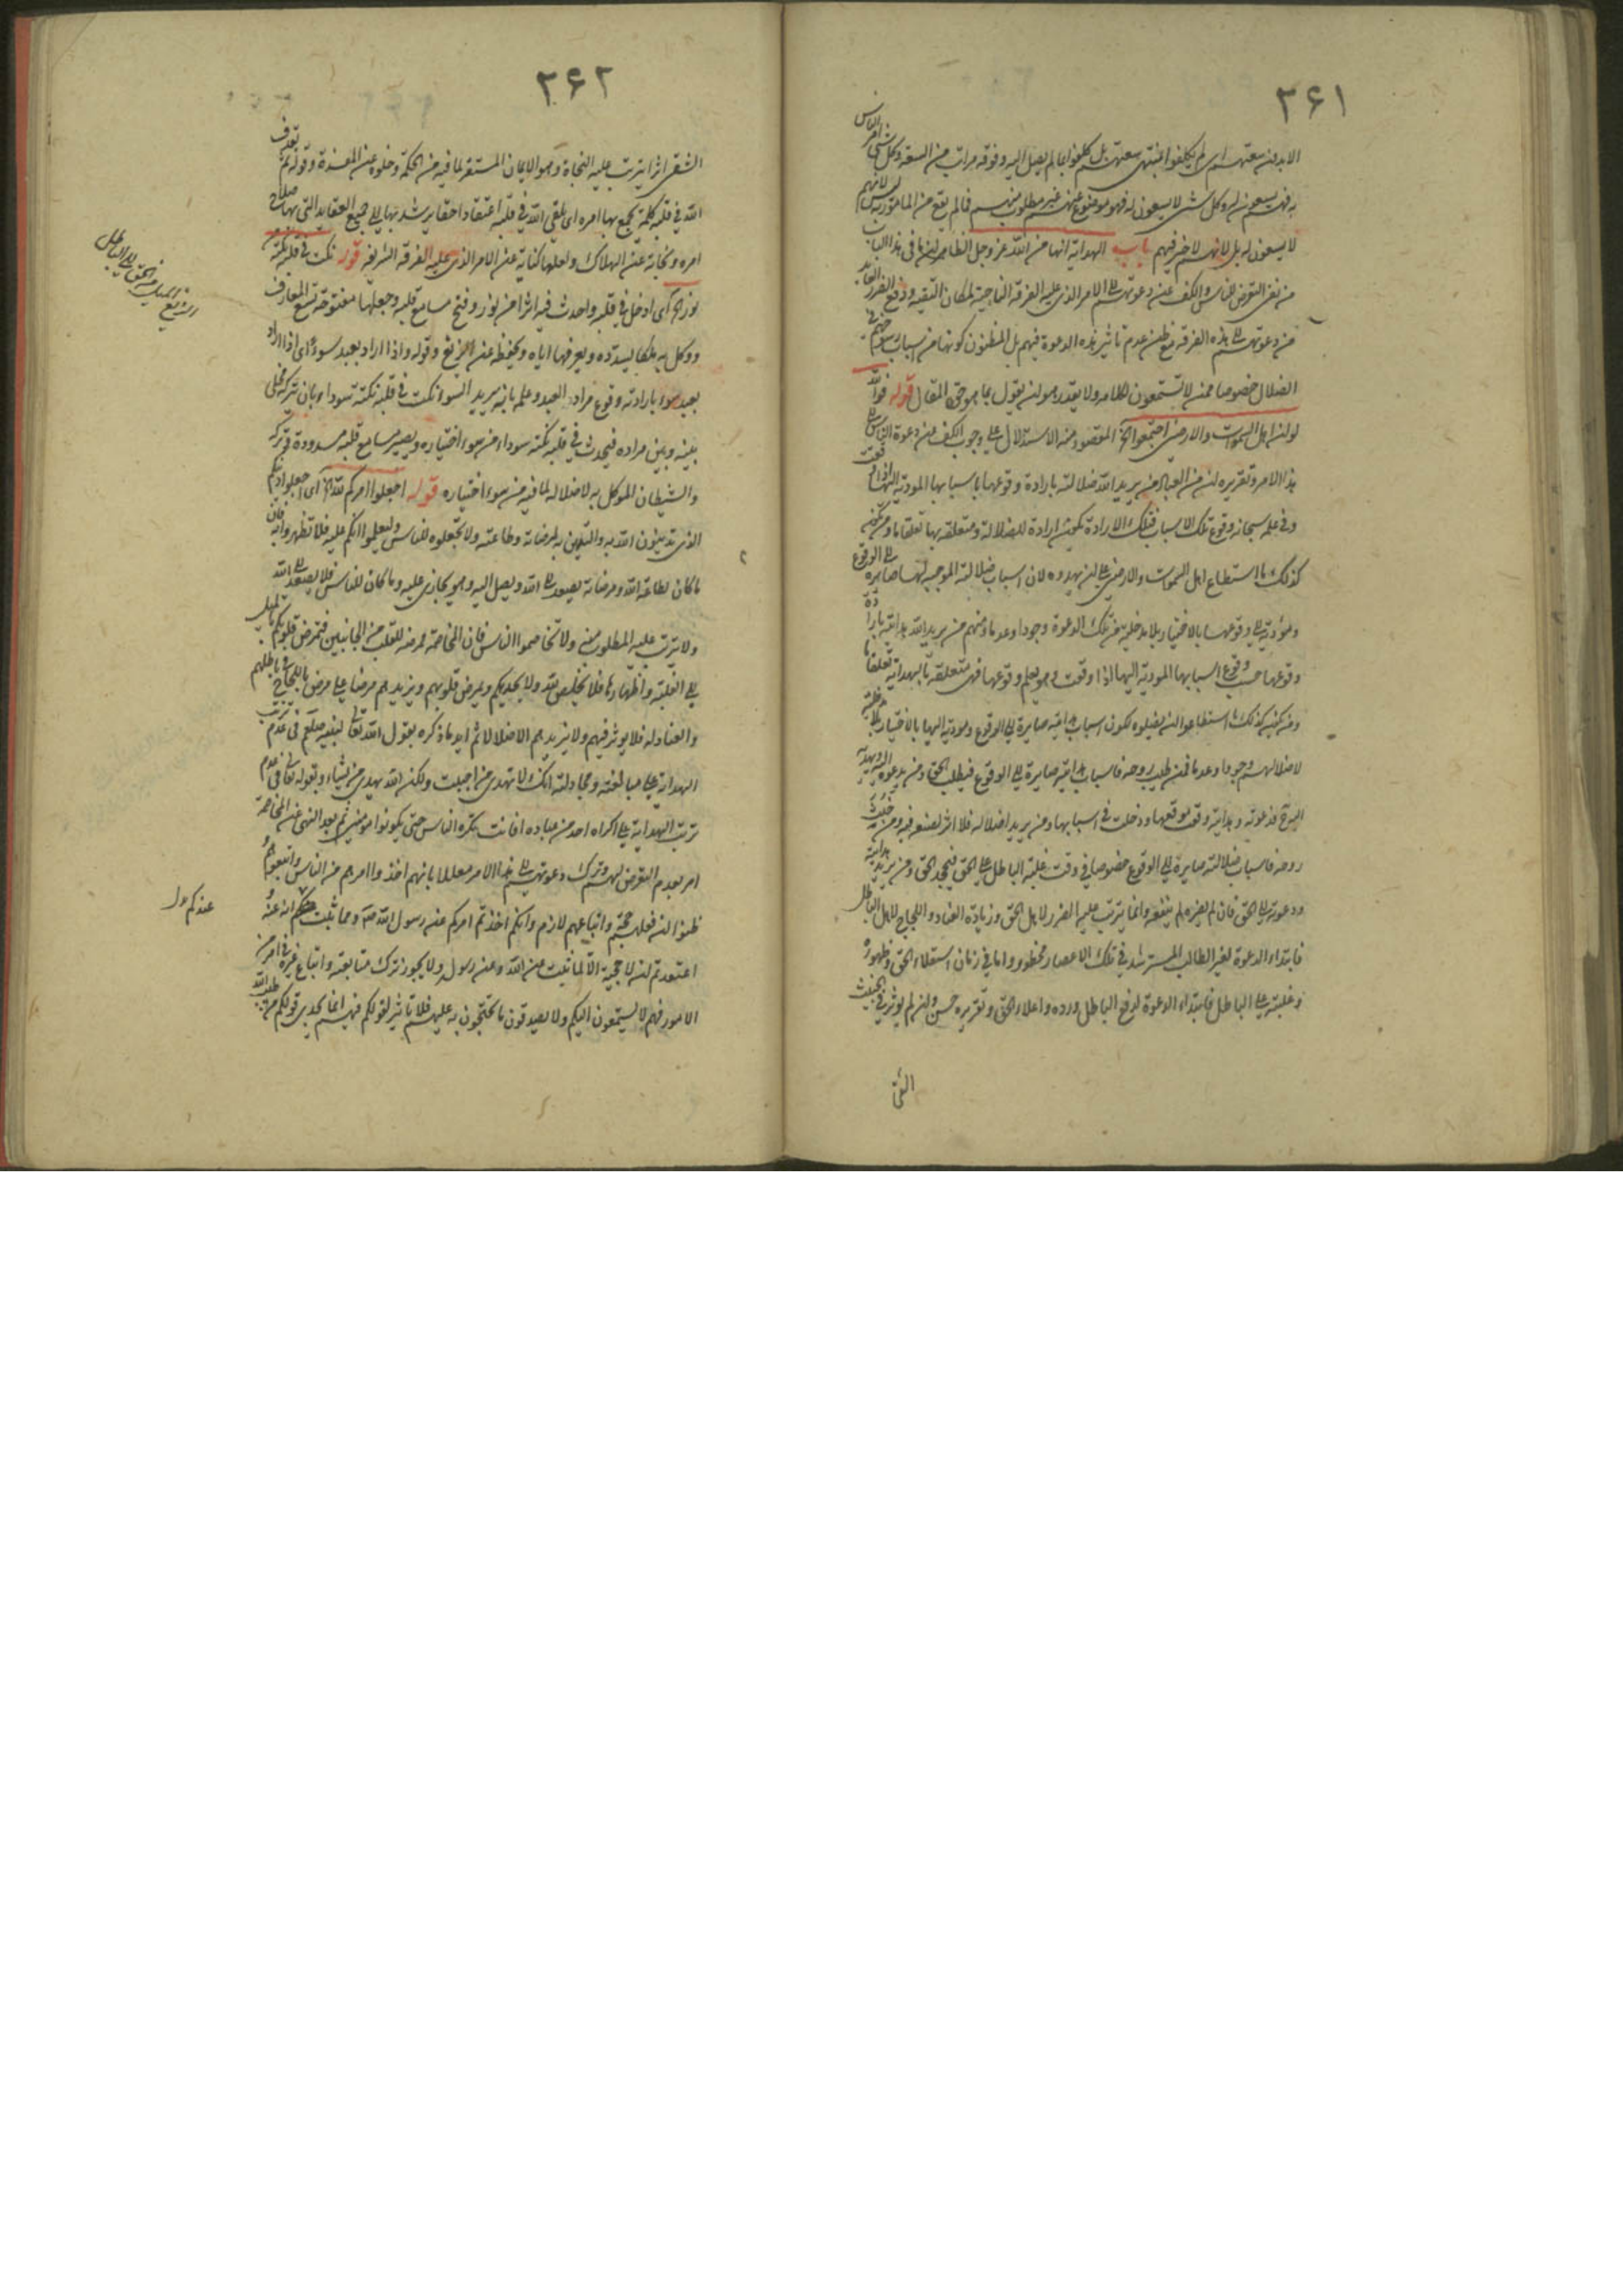 ۲۶۱
الا بدون سعتهم اى لم يكلفوا منتهى سعتهم بل كلفوا بما لم يصل اليه وفوقه مراتب من السعة وكل شئ امر الناس
به فهم يسعون له وكل شئ لا يسعون له فهو موضوع عنهم غير مطلوب منهم فما لم يقع من المامور به ليس لانهم
لا يسعون له بل لانهم لا خير فيهم باب الهداية انها من الله عز وجل الظاهر ان ما فى هذا الباب
من نفى التعرض للناس والكف عن دعوتهم الى الامر الذى عليه الفرقة الناجية لمكان التقية ودفع الضرر العايد
من دعوتهم الى هذه الفرقة مع ظن عدم تاثير هذه الدعوة فيهم بل المظنون كونها من اسباب رسوخهم فى
الضلال خصوصا ممن لا تستمعون كلامه ولا يقدر هو ان يقول بما هو حق المقال قوله فوالله
لو ان اهل السموات والارضين اجتمعوا الخ المقصود منه الاستدلال على وجوب الكف عن دعوة الناس الى
هذا الامر وتقريره ان من العباد من يريد الله ضلالته بارادة وقوعها باسبابها المودية اليها اذا وقعت
وفى علمه سبحانه وقوع تلك الاسباب فتلك الارادة تكون ارادة للضلالة ومتعلقة بها تعلقا ما ومن يكن
كذلك ما استطاع اهل السموات والارضين على ان يهدوه لان اسباب ضلالته الموجبة لها صايرة الى الوقوع
ومؤدية الى وقوعها بالاختيار بلا مدخلية من تلك الدعوة وجودا وعدما ومنهم من يريد الله هدايته بارادة
وقوعها حسب وقوع اسبابها المودية اليها اذا وقعت وهو يعلم وقوعها فهى متعلقة بالهداية تعلقا ما
ومن يكن كذلك ما استطاعوا ان يضلوه لكون اسباب هدايته صايرة الى الوقوع ومودية اليها بالاختيار بلا مدخلية
لاضلالهم وجودا وعدما فمن طلب روحه فاسباب هدايته صايرة الى الوقوع فيطلب الحق ومن يدعوه اليه ويهديه
اليه فدعوته وهدايته وقعت موقعها ودخلت فى اسبابها ومن يريد اضلاله فلا اثر لصنعه فيه ومن خبثت
روحه فاسباب ضلالته صايرة الى الوقوع خصوصا فى وقت غلبة الباطل على الحق فيجحد الحق ومن يريد هدايته
ودعوته الى الحق فان لم يضره لم ينفعه وانما يترتب عليه الضرر لاهل الحق وزيادة العناد واللجاج لاهل الباطل
فابتداء الدعوة لغير الطالب المسترشد فى تلك الاعصار محظور واما فى زمان استعلاء الحق وظهوره
وغلبته على الباطل فابتداء الدعوة لدفع الباطل ورده واعلاء الحق وتقريره حسن وان لم يوثر فى الخبيث
الشقى
۲۶۲
الشقى اثرا يترتب عليه النجاة وهو الايمان المستقر لما فيه من الحكمة وخلوه عن المفسدة وقوله ثم يقذف
الله فى قلبه كلمة يجمع بها امره اى يلقى الله فى قلبه اعتقادا حقا يرشد بها الى جميع العقايد التى بها صلاح
امره ونجاته عن الهلاك ولعلها كناية عن الامر الذى عليه الفرقة الشريفة قوله نكت فى قلبه نكتة من
نور الخ اى ادخل فى قلبه واحدث فيه اثرا من نور وفتح مسامع قلبه وجعلها مفتوحة تسمع المعارف
ووكل به ملكا يسدده ويعرفها اياه ويحفظه عن الزيغ وقوله واذا اراد بعبد سوءا اى اذا اراد
بعبد سوءا بارادته وقوع مراد العبد وعلمه بانه يريد السوء نكت فى قلبه نكتة سوداء بان تركه فخلى
بينه وبين مراده فيحدث فى قلبه نكتة سوداء من سوء اختياره ويصير مسامع قلبه مسدودة فيتركه
والشيطان الموكل به لاضلاله لما فيه من سوء اختياره قوله اجعلوا امركم لله الخ اى اجعلوا دينكم
الذى تدينون الله به والتدين به لمرضاته وطاعته ولا تجعلوه للناس وليعلموا انكم عليه فلا تظهروا به فان
ما كان لطاعة الله ومرضاته يصعد الى الله ويصل اليه وهو يجازى عليه وما كان للناس فلا يصعد الى الله
ولا يترتب عليه المطلوب منه ولا تخاصموا الناس فان المخاصمة ممرضة للقلب من الجانبين فتمرض قلوبكم بالميل
الى الغلبة واظهارها فلا يخلص لله ولا يجديكم ويمرض قلوبهم ويزيدهم مرضا على مرض باللجاج فى باطلهم
والعناد له فلا يوثر فيهم ولا يزيدهم الا ضلالا ثم ايد ما ذكره بقول الله تعالى لنبيه صلعم فى عدم ترتب
الهداية على مبالغته ومجادلته انك لا تهدى من احببت ولكن الله يهدى من يشاء وبقوله تعالى فى عدم
ترتب الهداية على اكراه احد من عباده افانت تكره الناس حتى يكونوا مؤمنين ثم بعد النهى عن المخاصمة
امر بعدم التعرض لهم وترك دعوتهم الى هذا الامر معللا بانهم اخذوا امرهم من الناس واتبعوهم
ظنوا ان فعلهم حجة واتباعهم لازم وانكم اخذتم امركم عن رسول الله ص ومما ثبت عندكم انه عنه
اعتقدتم ان لا حجية الا لما ثبت عن الله وعن رسوله ولا يجوز ترك متابعته واتباع غيره فى امر من
الامور فهم لا يستمعون اليكم ولا يصدقون ما تحتجون به عليهم فلا تاثير لقولكم فيهم انما يجدى قولكم من طلب الله
الزيغ الميل من الحق الى الباطل
عندكم ول